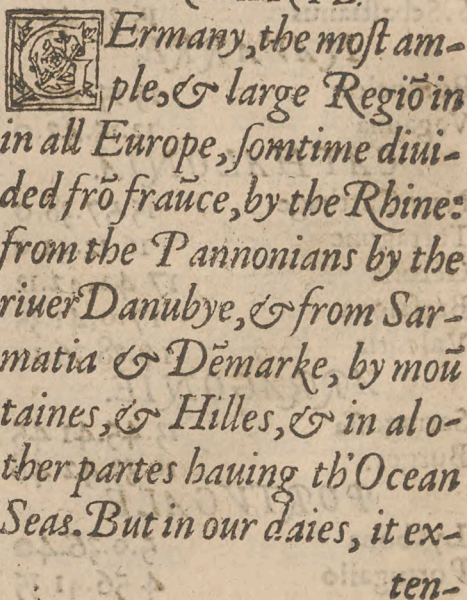 GErmany, the moſt am-
ple, & large Regiō in
in all Europe, ſomtime diui-
ded frō fraūce, by the Rhine:
from the Pannonians by the
riuer Danubye, & from Sar-
matia & Dēmarke, by moū
taines, & Hilles, & in al o-
ther partes hauing th'Ocean
Seas. But in our daies, it ex-
ten-